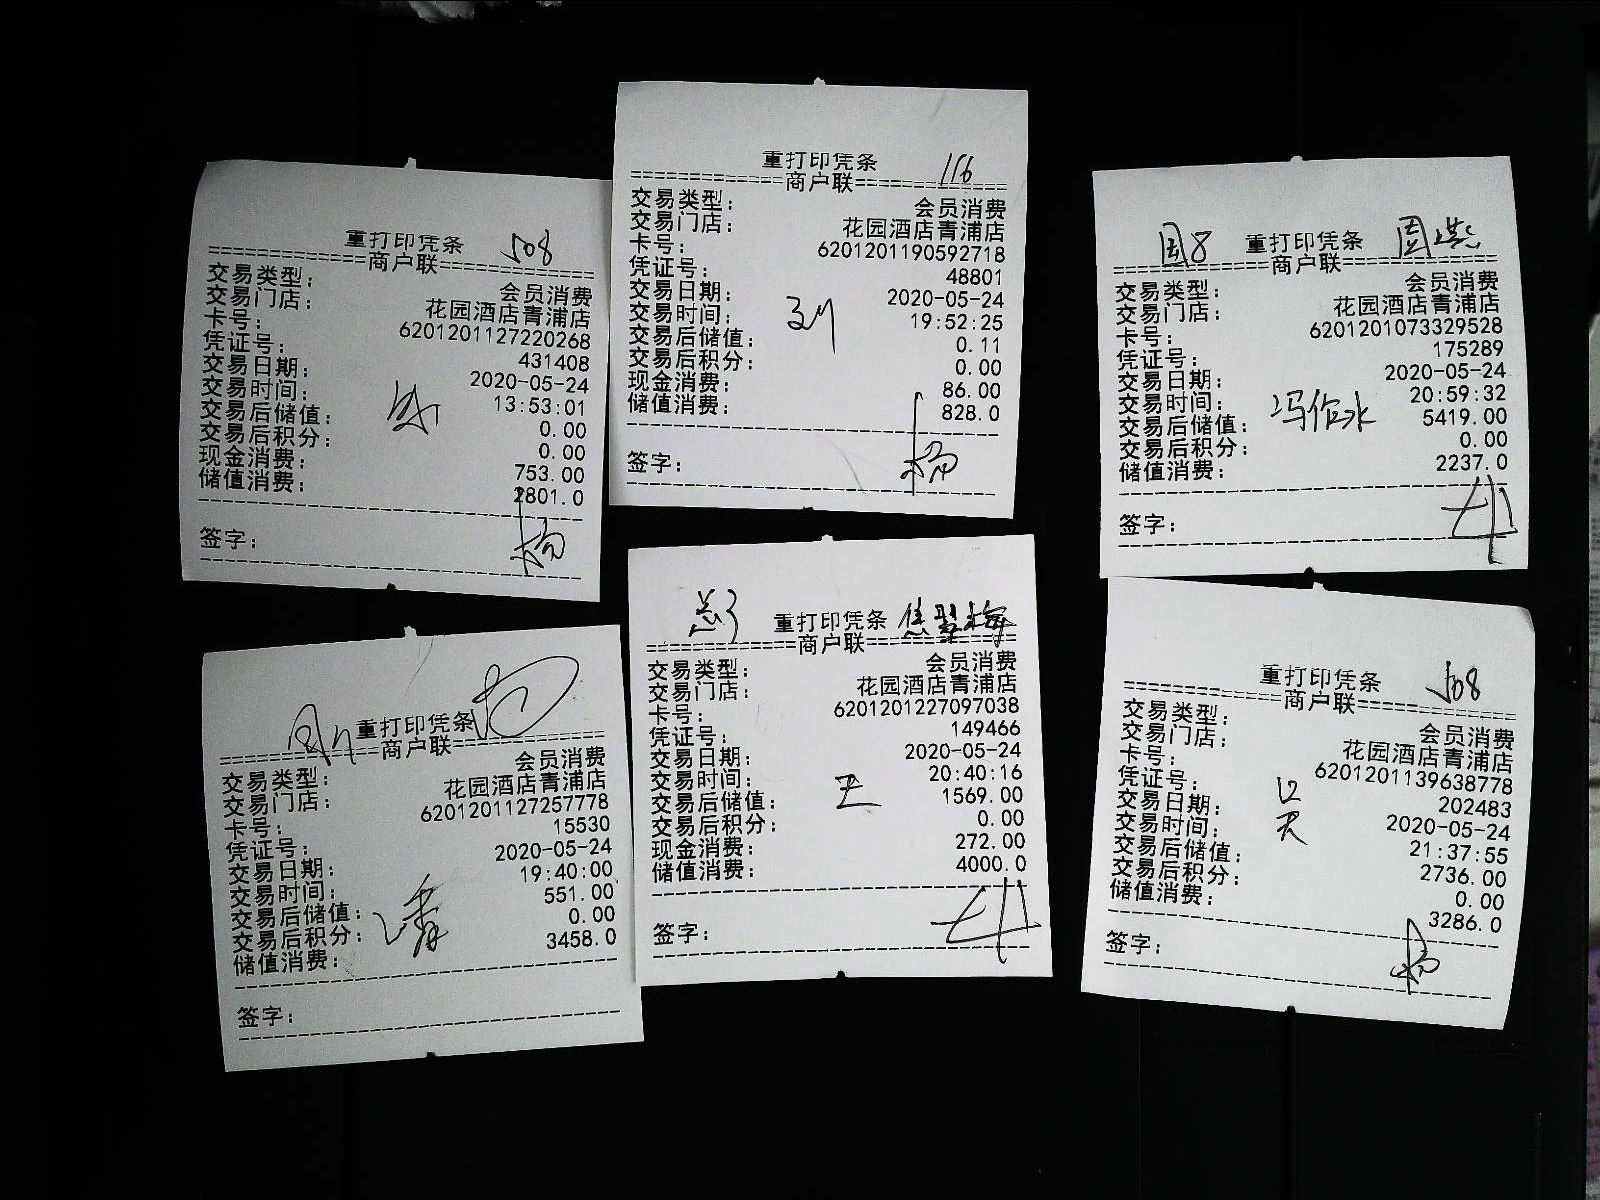 重打印凭条 508
============商户联============
交易类型： 会员消费
交易门店： 花园酒店青浦店
卡号： 6201201127220268
凭证号： 431408
交易日期： 2020-05-24
交易时间： 13:53:01
交易后储值： 0.00
交易后积分： 0.00
现金消费： 753.00
储值消费： 2801.0
签字： 杨
重打印凭条 116
============商户联============
交易类型： 会员消费
交易门店： 花园酒店青浦店
卡号： 6201201190592718
凭证号： 48801
交易日期： 2020-05-24
交易时间： 19:52:25
刘
交易后储值： 0.11
交易后积分： 0.00
现金消费： 86.00
储值消费： 828.0
签字： 杨
国8 重打印凭条
============商户联============
交易类型： 会员消费
交易门店： 花园酒店青浦店
卡号： 6201201073329528
凭证号： 175289
交易日期： 2020-05-24
交易时间： 20:59:32
交易后储值： 5419.00
交易后积分： 0.00
储值消费： 2237.0
签字：
重打印凭条
============商户联============
交易类型： 会员消费
交易门店： 花园酒店青浦店
卡号： 6201201127257778
凭证号： 15530
交易日期： 2020-05-24
交易时间： 19:40:00
交易后储值： 551.00
交易后积分： 0.00
潘
储值消费： 3458.0
签字：
总3 重打印凭条 焦翠梅
============商户联============
交易类型： 会员消费
交易门店： 花园酒店青浦店
卡号： 6201201227097038
凭证号： 149466
交易日期： 2020-05-24
交易时间： 20:40:16
王
交易后储值： 1569.00
交易后积分： 0.00
现金消费： 272.00
储值消费： 4000.0
签字：
重打印凭条 508
============商户联============
交易类型： 会员消费
交易门店： 花园酒店青浦店
卡号： 6201201139638778
凭证号： 202483
交易日期： 2020-05-24
吴
交易时间： 21:37:55
交易后储值： 2736.00
交易后积分： 0.00
储值消费： 3286.0
签字： 杨